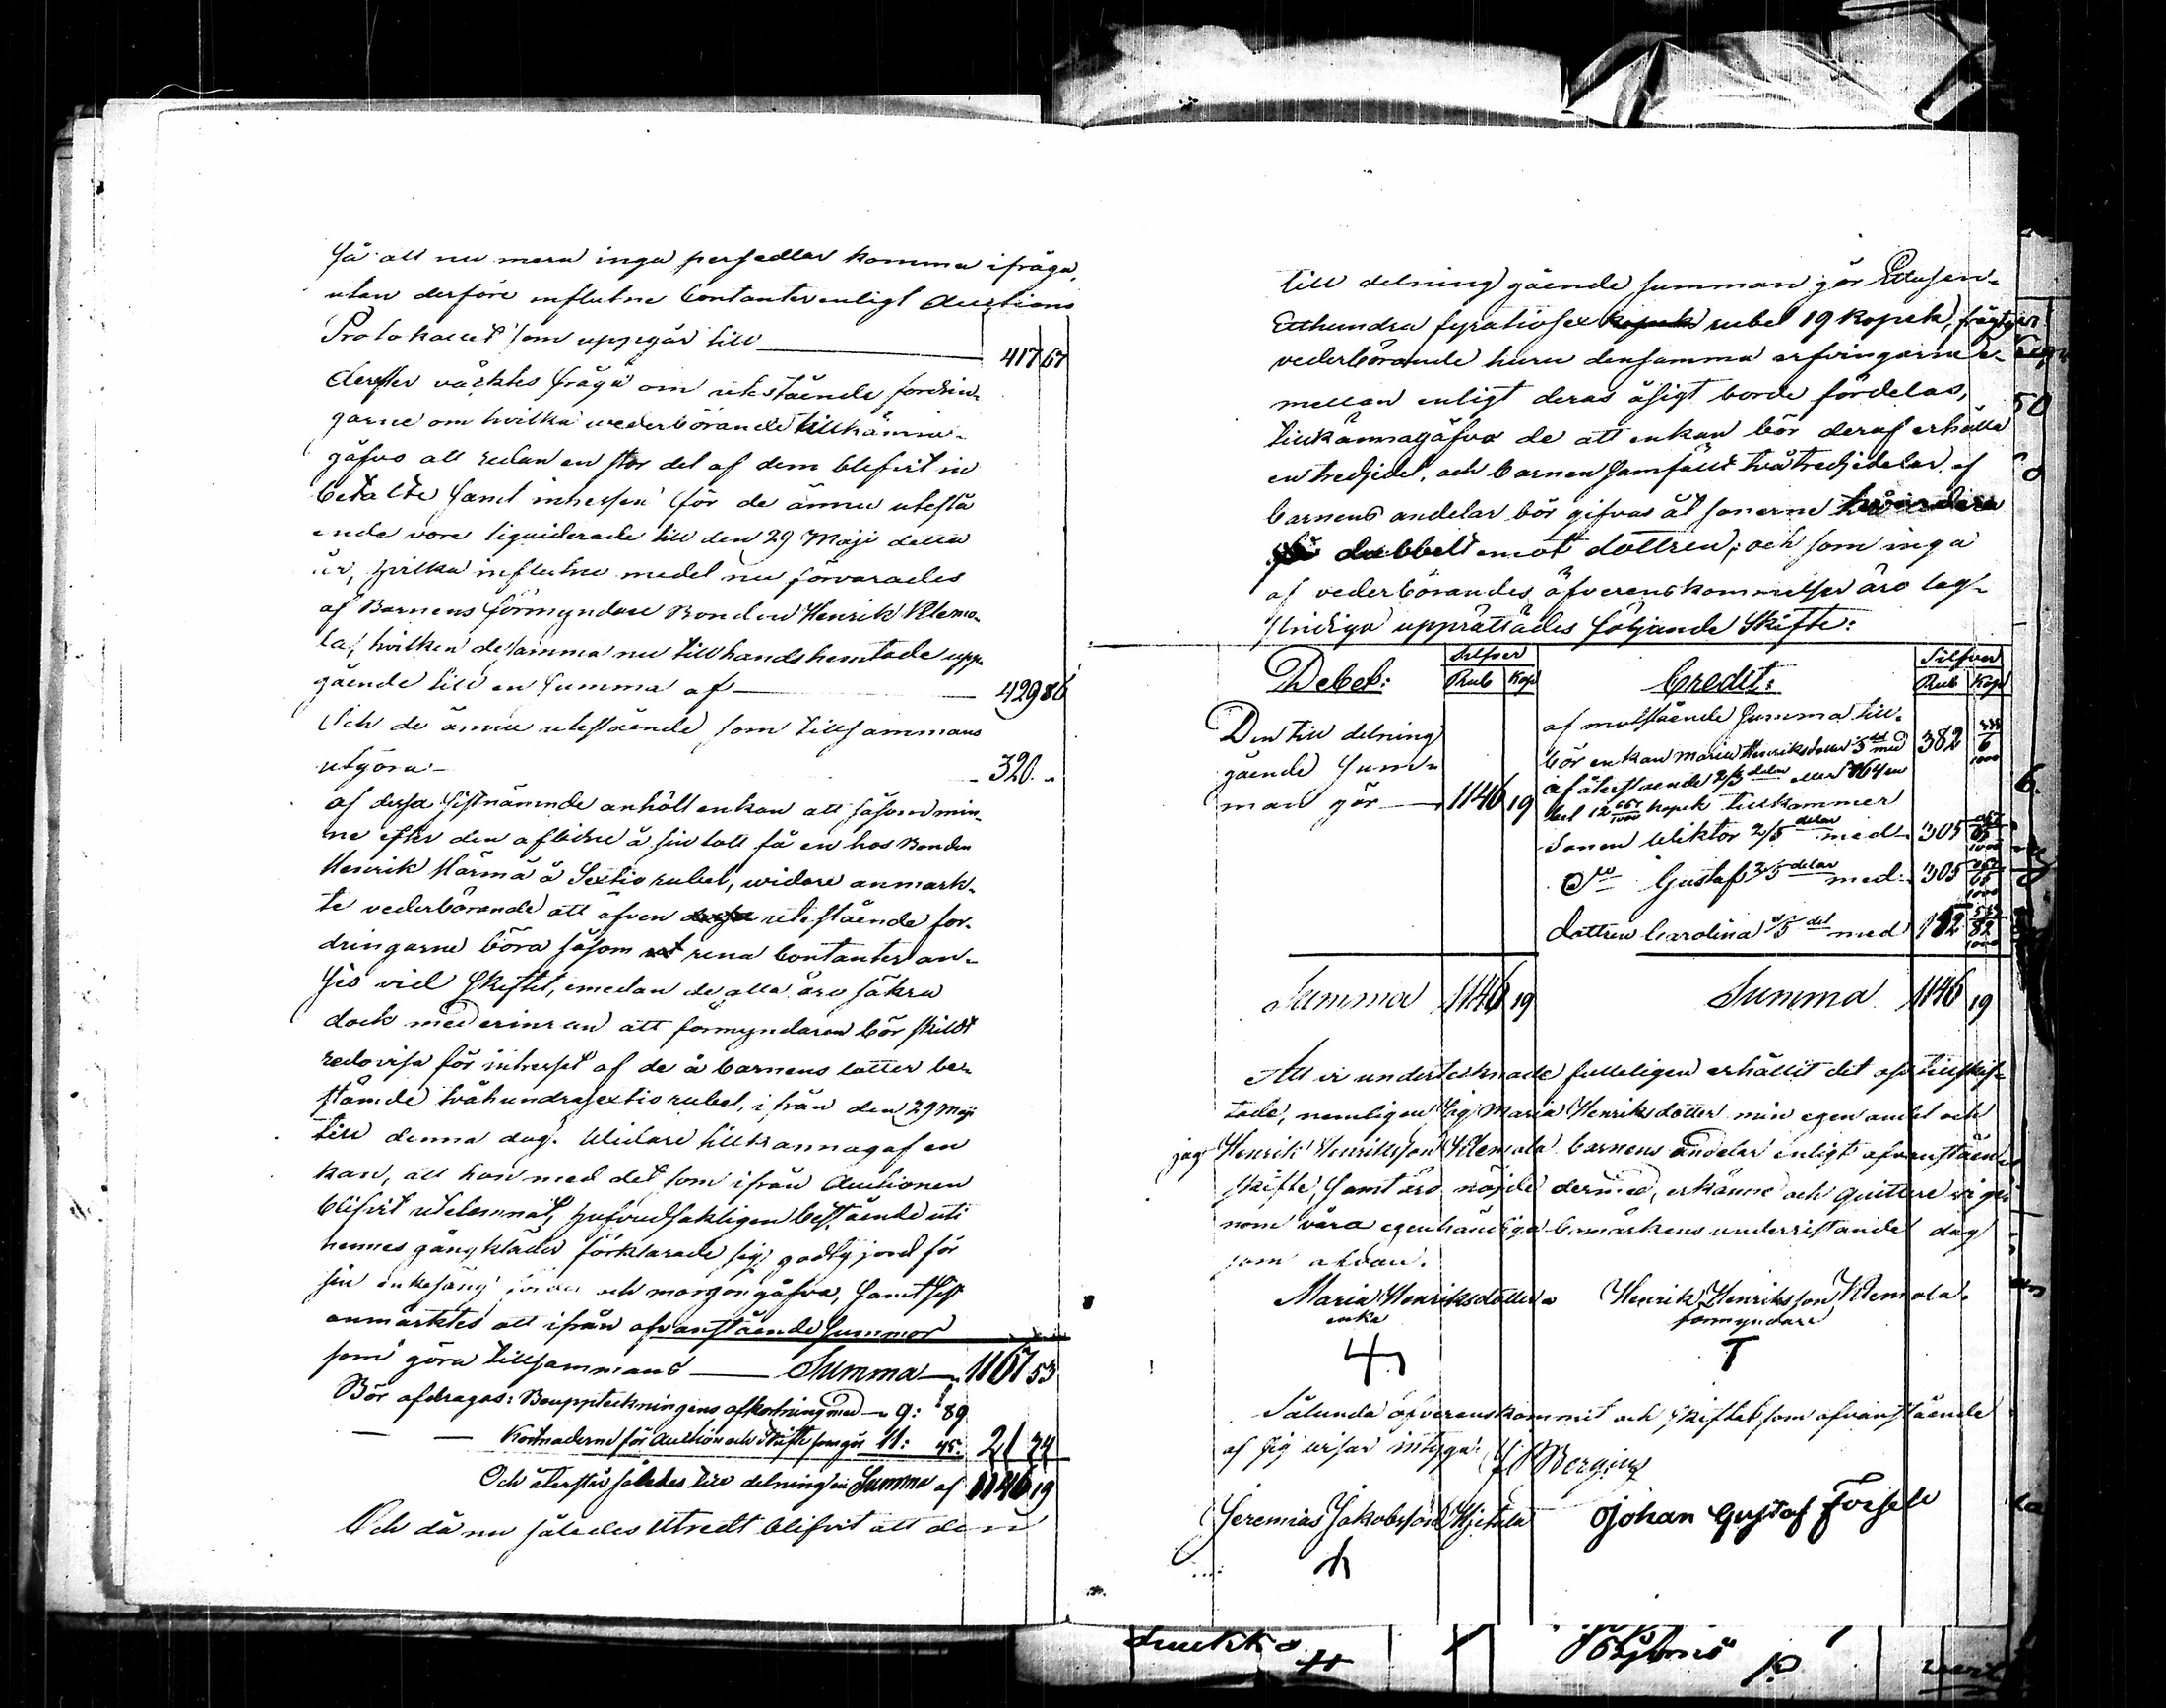 så att nu mera inga persedlar komma ifråga,
utan derföre influtne Contanter enligt Auctions
Protokollet som uppgår till 417 67
derefter väcktes fråga om utestående fordrin-
garne om hvilka wederbörande tillkänna-
gåfvo att redan en stor del af dem blefvit in
betalte samt intressen för de ännu utestå
ende vore liquiderade till den 29 Maji detta
år, hvilka influtne medel nu förvarades
af Barnens förmyndare Bonden Henrik Klemo-
la, hvilken desamma nu tillhandshemtade upp-
gående till en Summa af 429 86
Och de ännu utestående som tillsammans
utgöra 320. -
af dessa sistnämnde anhöll enkan att såsom min-
ne efter den aflidne å sin lott få en hos Bonden
Henrik Härmä å Sextio rubel, widare anmärk-
te vederbörande att äfven dessa utestående for-
dringarne böra såsom rena Contanter an-
ses vid Skiftet, emedan de alla äro säkra
dock med erinran att förmyndaren bör skildt
redovisa för intresset af de å barnens lotter be-
stämde tvåhundrasextio rubel, ifrån den 29 Maji
till denna dag. Widare tillkännagaf en
kan, att hon med det som ifrån Auctionen
blifvit utelemnat, hufvudsakligen bestående uti
hennes gångkläder förklarade sig godtgjord för
sin enkesäng och morgongåfva, samt sist
anmärktes att ifrån ofvanstående Summor
som göra tillsammans Summa 1167 53
Bör afdragas: Bouppteckningens afkortning med 9: 89
— — Kostnaderne för Auction och Skifte som gör 11: 45. 21 34
Och återstår således till delning en Summa af 1146 19
Och då nu således Utredt blifvit att den
till delning gående summan gör Ettusen-
Etthundra fyratiosex kopek rubel 19 kopek, frågtes
vederbörande huru densamma arfvingarne e-
mellan enligt deras åsigt borde fördelas,
tillkännagåfvo de att enkan bör deraf erhålla
en tredjedel, och barnen samfäldt två tredjedelar, af
barnens andelar bör gifvas åt sonerne hvardera
dubbelt emot dottren; och som inga
af vederbörandes öfverenskommelser äro lag-
stridiga upprättades följande Skifte:
Debet: Silfver Rub Kop Credit: Silfver Rub Kop
Den till delning
gående Sum-
man gör 1146 19
af motstående Summa till-
bör enkan Maria Henriksdotter 1/3 del med 382 6
af återstående 2/3 delar eller 764 ru
bel 12 kopek tillkommer
Sonen Wiktor 2/5 delar med 305 65
Do Gustaf 2/5 delar med 305 65
dottren Carolina 1/5 del med 152 82
Summa 1146 19 Summa 1146 19
Att vi undertecknade fulleligen erhållit det oss tillskif-
tade, nemligen jag Maria Henriksdotter min egen andel och
jag Henrik Henriksson Klemola barnens andelar enligt ofvanstående
skifte, samt äro nöjde dermed, erkänne och quittere vi ge-
nom våra egenhändiga bomärkens underristande dag
som ofvan.
Maria Henriksdotter Henrik Henriksson Klemola.
enka förmyndare
Sålunda öfverenskommit och skiftat som ofvanstående
af sig visar intyga: Bergius
Jeremias Jakobsson Hjetala Johan Gustaf Forsell